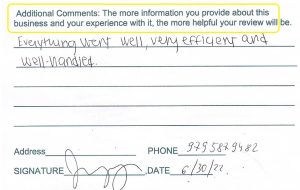 Additional Comments: The more information you provide about this
business and your experience with it, the more helpful your review will be.
Everything went well, very efficient and
well-handled.
Address PHONE 9795879482
SIGNATURE DATE 6/30/22